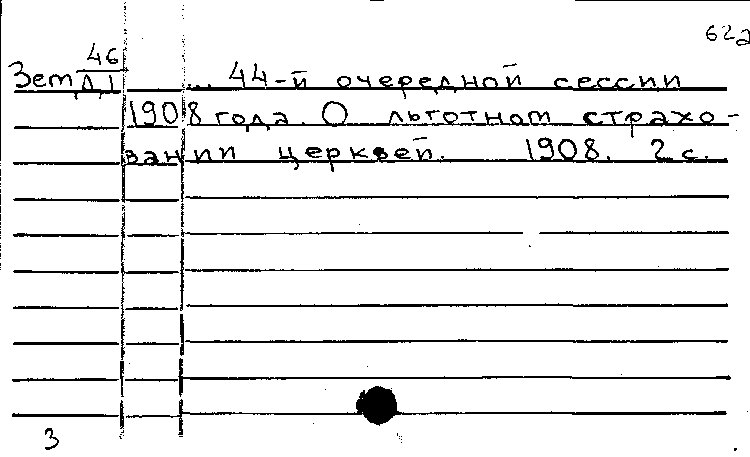 62а
46
Зем Д1 ... 44-й очередной сессии
1908 года. О льготном страхо-
вании церквей. 1908. 2 с.
3